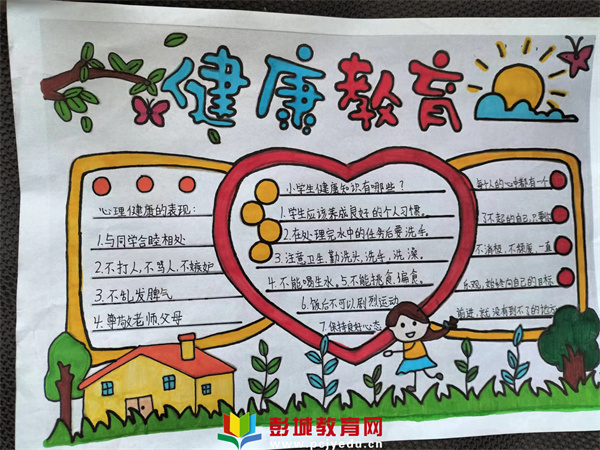 健康教育
心理健康的表现:
1.与同学合睦相处
2.不打人.不骂人.不嫉妒
3.不乱发脾气
4.尊敬老师父母
小学生健康知识有哪些?
1.学生应该养成良好的个人习惯。
2.在处理完水中的任务后要洗手。
3.注意卫生,勤洗头,洗手,洗澡。
4.不能喝生水。5.不能挑食.偏食。
6.饭后不可以剧烈运动
7.保持良好心态
每个人的心中都有一个
了不起的自己,只要你
不消极、不颓废、一直
乐观,始终向自己的目标
前进,就没有到不了的地方
彭城教育网
www.pcjyedu.cn